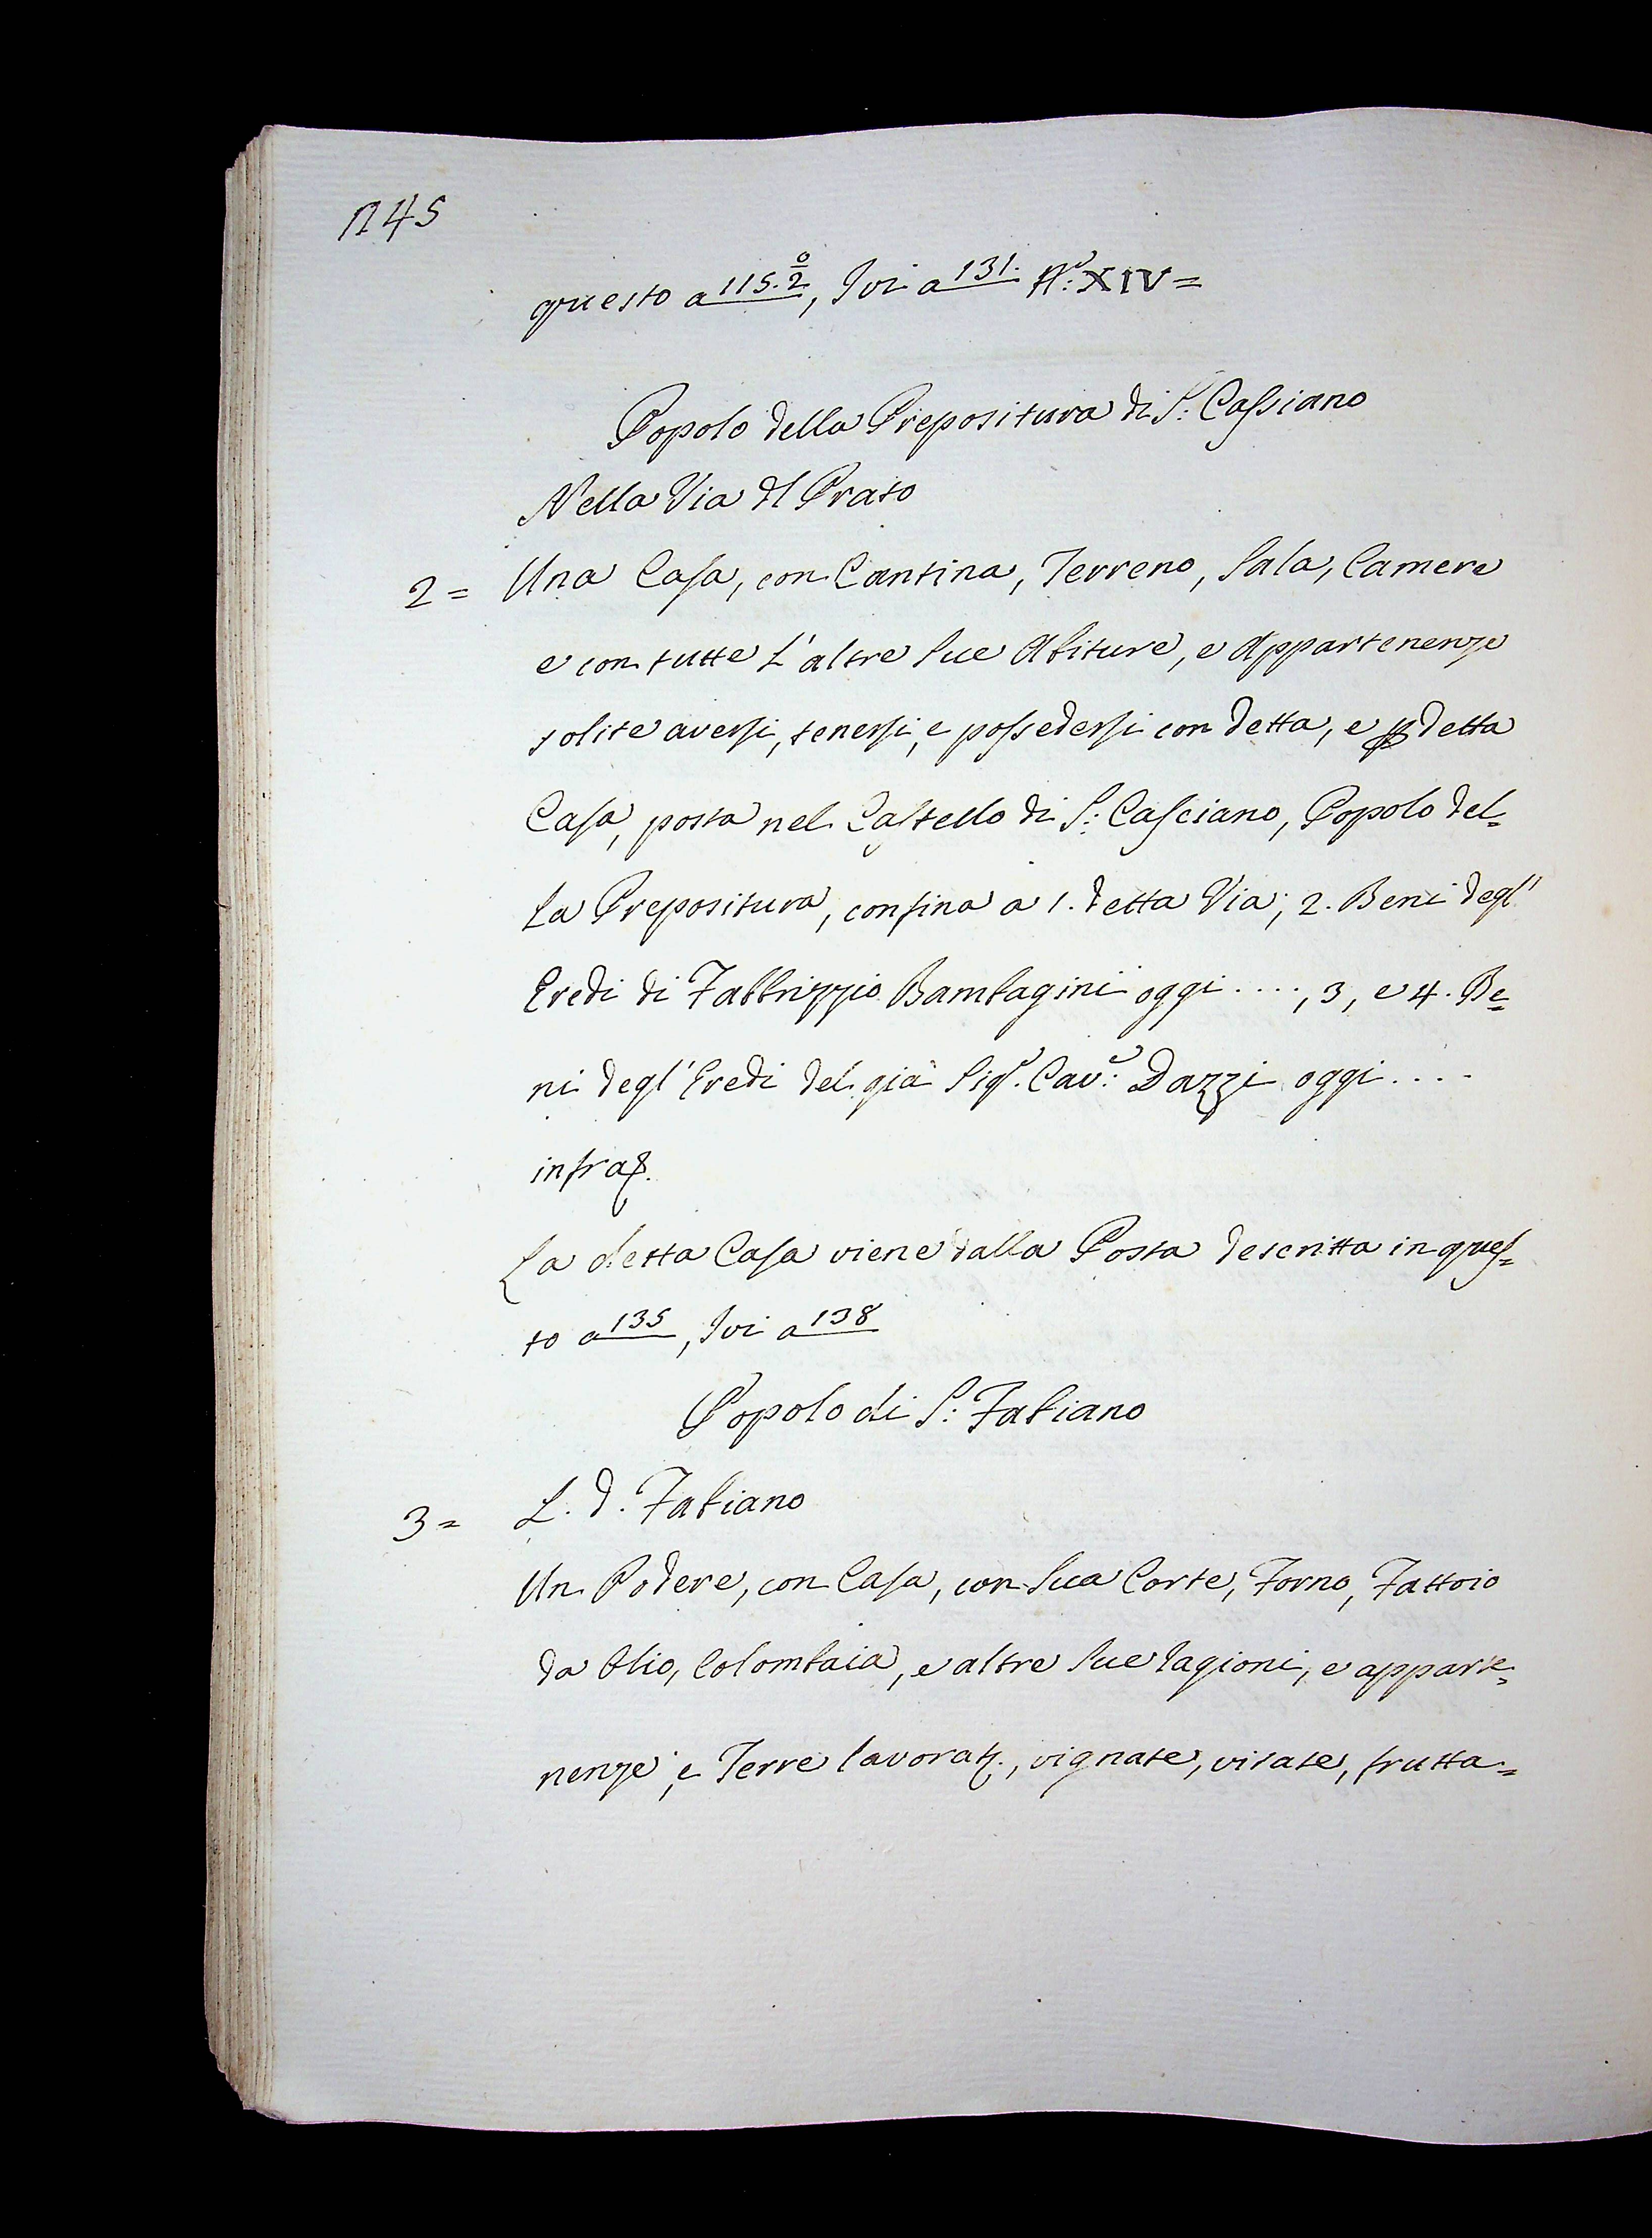 1745
questo a 115. 2°, Ivi a 131. N.° XIV =
Popolo della Prepositura di S: Cassiano
Nella Via dl Prato
2 = Una Casa, con Cantina, Terreno, Sala, Camere
e con tutte L'altre Sue Abiture, e Appartenenze
solite aversi, tenersi, e possedersi con detta, e p detta
Casa, posta nel Castello di S: Casciano, Popolo del=
la Prepositura, confina a 1. detta Via; 2. Beni degl'
Eredi di Fabbrizzio Bambagini oggi ...., 3, e 4. Be=
ni degl'Eredi del già Sig.r Cav.e: Dazzi oggi ....
infraq.
La detta Casa viene dalla Posta descritta in ques=
to a 135, Ivi a 138
Popolo di S: Fabiano
3 = L. d. Fabiano
Un Podere, con Casa, con Sua Corte, Forno, Fattoio
da Olio, Colombaia, e altre Sue ragioni, e apparte=
nenze, e Terre lavorat., vignate, vitate, frutta=